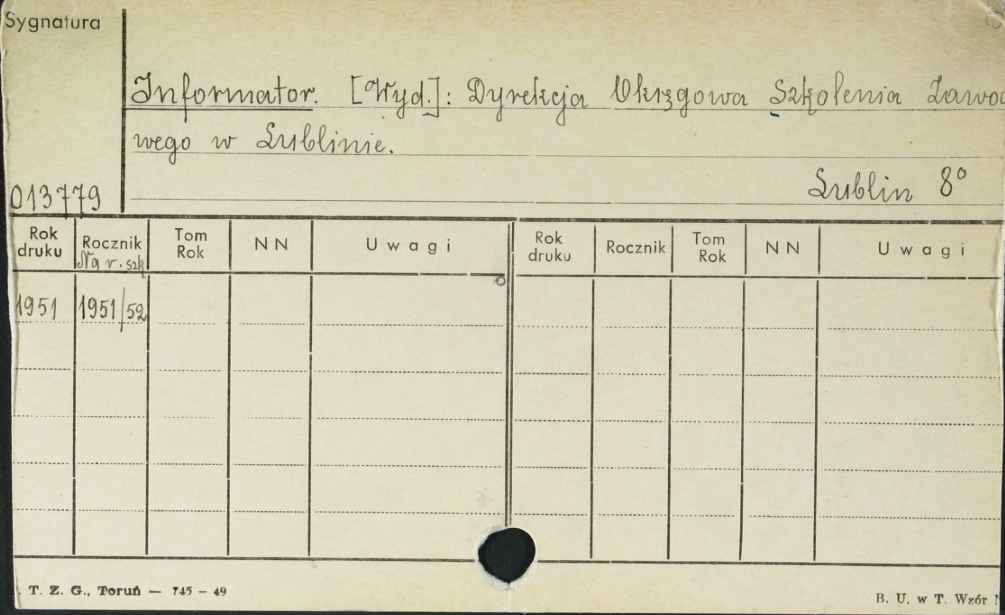 Sygnatura
Informator. [Wyd.]: Dyrekcja Okręgowa Szkolenia Zawodo
wego w Lublinie.
Lublin 8°
013779
Rok druku Rocznik Na r. szk Tom Rok NN Uwagi Rok druku Rocznik Tom Rok NN Uwagi
1951 1951/52
T. Z. G., Toruń — 745 – 49
B. U. w T. Wzór